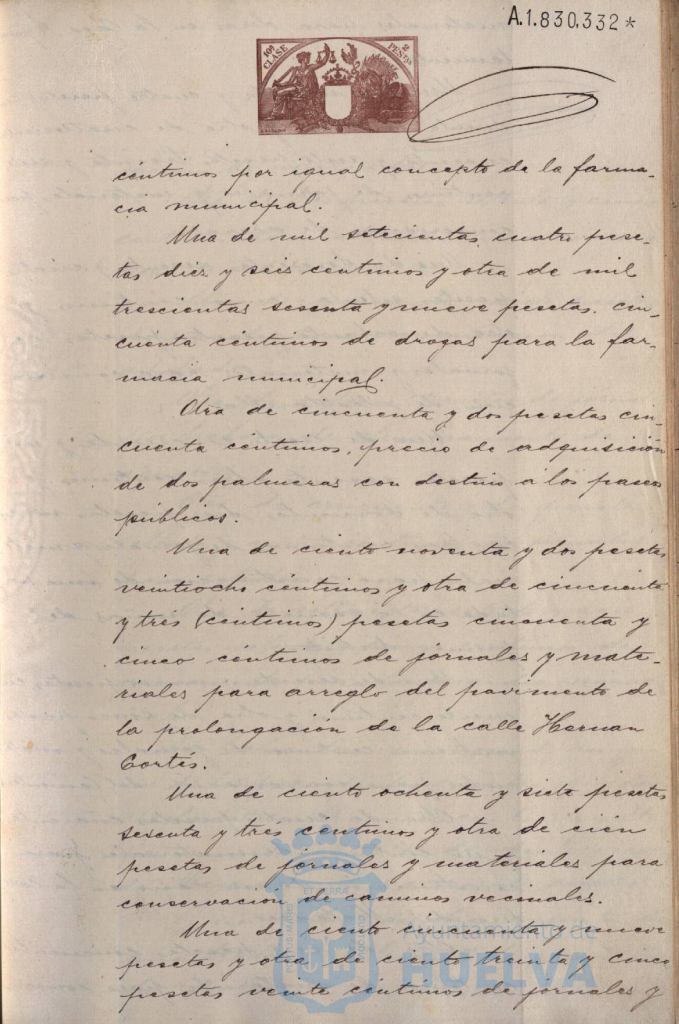 A.1.830.332*
10ª CLASE
2 PESTAS
céntimos por igual concepto de la farma-
cia municipal.
Una de mil setecientas cuatro pese-
tas diez y seis céntimos y otra de mil
trescientas sesenta y nueve pesetas. cin-
cuenta céntimos de drogas para la far-
macia municipal.
Otra de cincuenta y dos pesetas cin-
cuenta céntimos, precio de adquisición
de dos palmeras con destino á los paseos
públicos.
Una de ciento noventa y dos pesetas
veintiocho céntimos y otra de cincuenta
y trés (céntimos) pesetas cincuenta y
cinco céntimos de jornales y mate-
riales para arreglo del pavimento de
la prolongación de la calle Hernan
Cortés.
Una de ciento ochenta y siete pesetas
sesenta y trés céntimos y otra de cién
pesetas de jornales y materiales para
conservación de caminos vecinales.
Una de ciento cincuenta y nueve
pesetas y otra de ciento treinta y cinco
pesetas veinte céntimos de jornales y
Ayuntamiento de
HUELVA